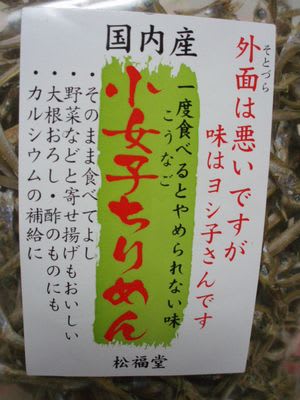 国内産
外面は悪いですが
そとづら
味はヨシ子さんです
一度食べるとやめられない味
こうなご
小女子ちりめん
・そのまま食べてよし
・野菜などと寄せ揚げもおいしい
・大根おろし・酢のものにも
・カルシウムの補給に
松福堂